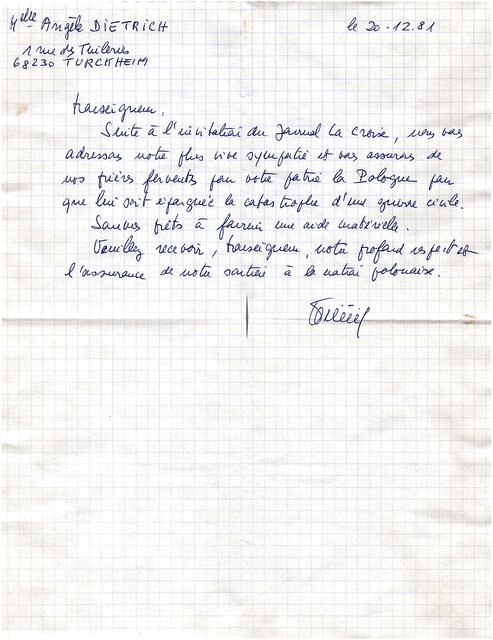 Melle Angèle DIETRICH
le 20.12.81
1 rue des Tuileries
68230 TURCKHEIM
Monseigneur,
Suite à l'invitation du Journal La Croix, nous vous
adressons notre plus vive sympathie et vous assurons de
nos prières ferventes pour votre patrie la Pologne pour
que lui soit épargnée la catastrophe d'une guerre civile.
Sommes prêts à fournir une aide matérielle.
Veuillez recevoir, Monseigneur, notre profond respect et
l'assurance de notre soutien à la nation polonaise.